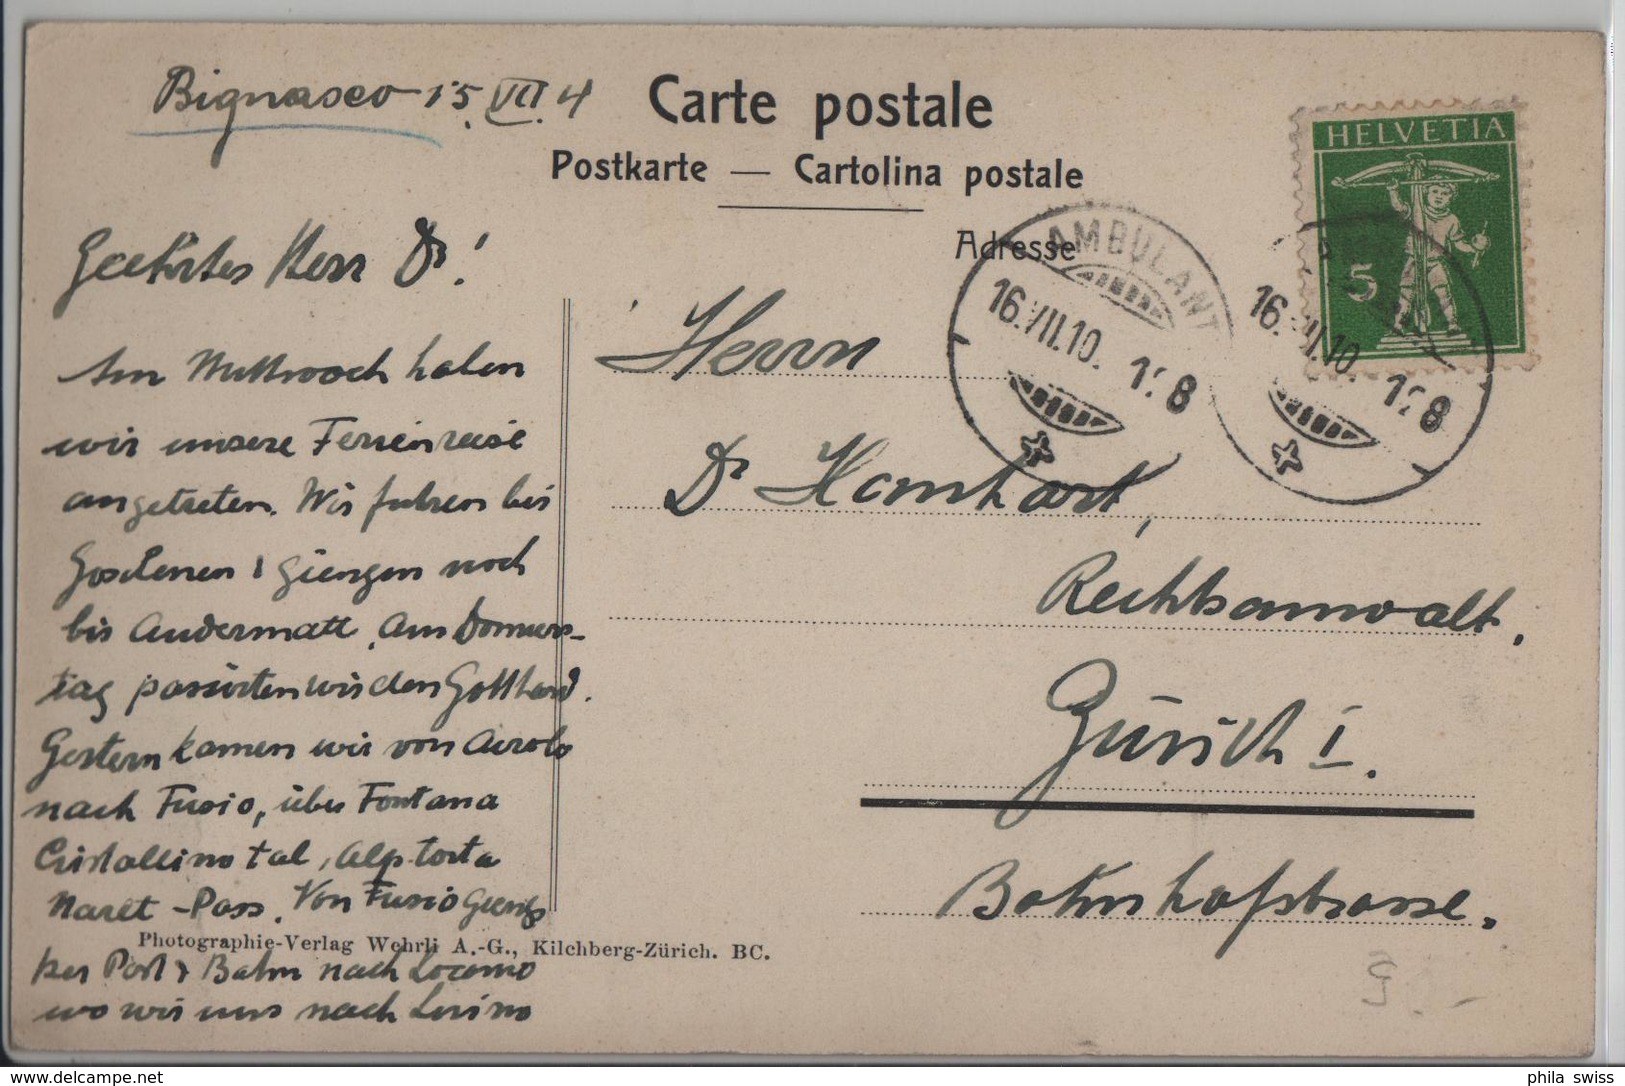 Bignasco 15. VII. 4
Carte postale
Postkarte — Cartolina postale
HELVETIA
5
Adresse
AMBULANT
16.VII.10. 128
16.VII.10. 128
Geehrtes Herr Dr!
Am Mittwoch haben
wir unsere Ferienreise
angetreten. Wir fuhren bis
Göschenen & giengen noch
bis Andermatt. Am Donners-
tag passirten wir den Gotthard.
Gestern kamen wir von Airolo
nach Fusio, über Fontana
Cristallino tal, Alp torta
Naret-Pass. Von Fusio giengs
per Post & Bahn nach Locarno
wo wir uns nach
Herrn
Dr
Rechtsanwalt.
Zürich I.
Bahnhofstrasse.
Photographie-Verlag Wehrli A.-G., Kilchberg-Zürich. BC.
phila swiss